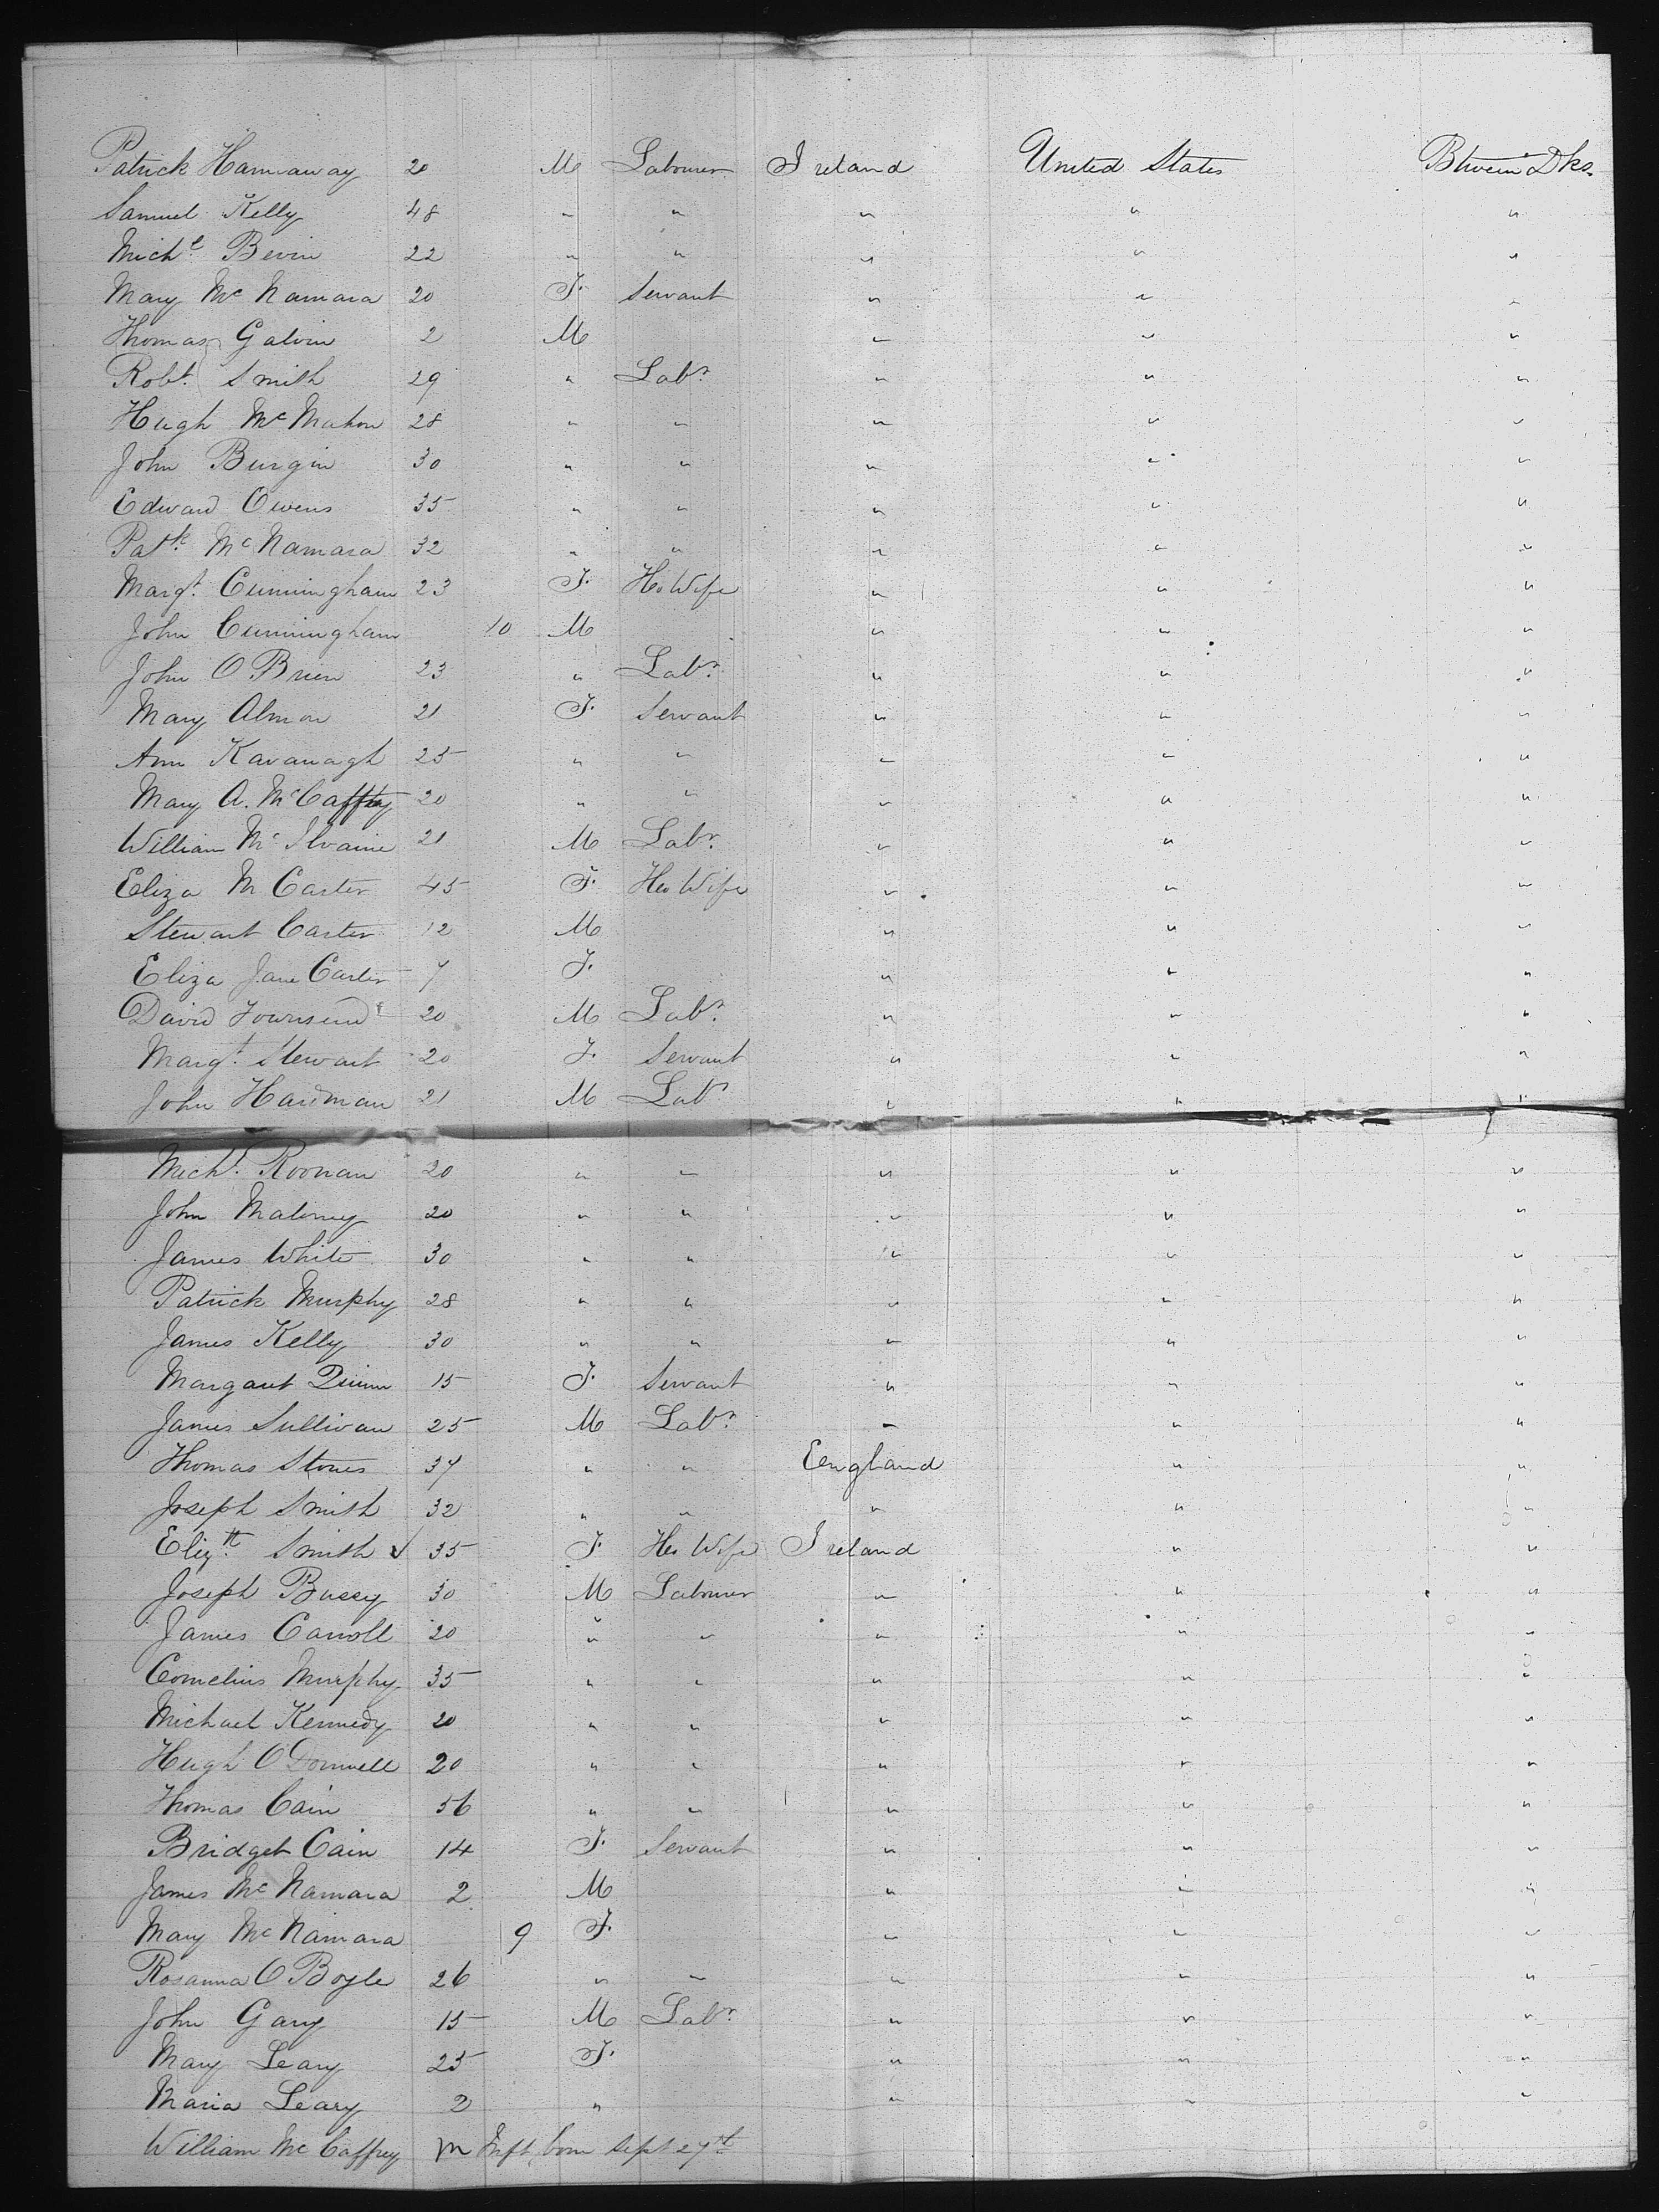 Patrick Hannaway 20 M Labourer Ireland United States Btwein Dks.
Samuel Kelly 48 " " " " "
Michl Bevin 22 " " " " "
Mary Mc Namara 20 F. Servant " " "
Thomas Galvin 2 M " " "
Robt. Smith 29 " Labr. " " "
Hugh Mc Mahon 28 " " " " "
John Burgin 30 " " " " "
Edward Owens 35 " " " " "
Patk. Mc Namara 32 " " " " "
Margt. Cunningham 23 F. His Wife " " "
John Cunningham 10 M " " "
John O Brien 23 " Labr. " " "
Mary Almon 21 F. Servant " " "
Ann Kavanagh 25 " " " " "
Mary A. McCaffrey 20 " " " " "
William Mc Ilvaine 21 M Labr. " " "
Eliza M Carter 45 F. His Wife " " "
Stewart Carter 12 M " " "
Eliza Jane Carter 7 F. " " "
David Townsend 20 M Labr. " " "
Margt. Stewart 20 F. Servant " " "
John Hardman 21 M Labr " " "
Michl. Roonan 20 " " " " "
John Maloney 20 " " " " "
James White 30 " " " " "
Patrick Murphy 28 " " " " "
James Kelly 30 " " " " "
Margaret Quinn 15 F. Servant " " "
James Sullivan 25 M Labr. " " "
Thomas Stones 37 " " England " "
Joseph Smith 32 " " " " "
Elizth. Smith 35 F. His Wife Ireland " "
Joseph Bussey 30 M Labourer " " "
James Carroll 20 " " " " "
Cornelius Murphy 35 " " " " "
Michael Kennedy 20 " " " " "
Hugh O Donnell 20 " " " " "
Thomas Cain 56 " " " " "
Bridget Cain 14 F. Servant " " "
James Mc Namara 2 M " " "
Mary Mc Namara 9 F. " " "
Rosanna O Boyle 26 " " " " "
John Gary 15 M Labr. " " "
Mary Leary 25 F. " " "
Maria Leary 2 " " " "
William Mc Caffrey M Inft born Sept 27th